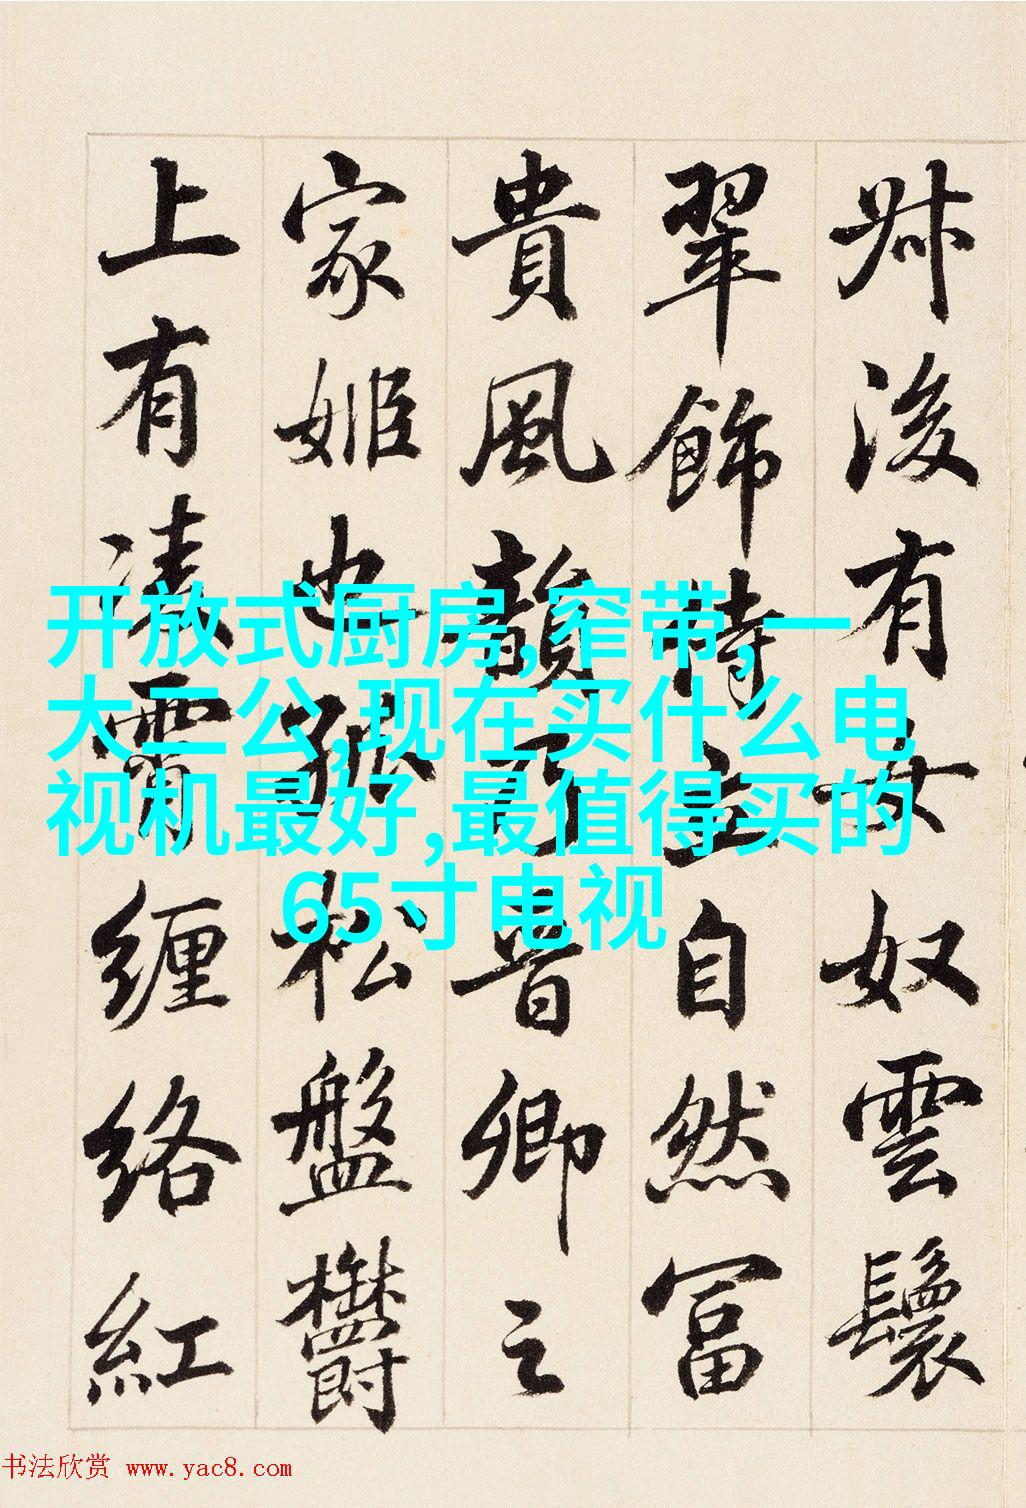 丱後有女奴雲鬟
翠飾侍立自然富
貴風韻乃晉卿之
家姬也孤松盤欝
上有凌霄纏络紅
开放式厨房,窄带,一
大二公,现在买什么电
视机最好,最值得买的
65寸电视
书法欣赏 www.yac8.com